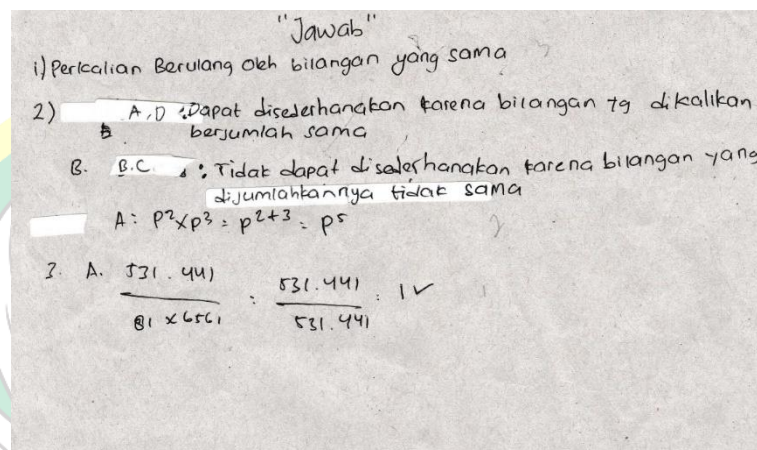 "Jawab"
1) Perkalian Berulang Oleh bilangan yang sama
2) A, D : Dapat disederhanakan karena bilangan yg dikalikan
berjumlah sama
B. B.C. : Tidak dapat disederhanakan karena bilangan yang
dijumlahkannya tidak sama
A: P²xp³ = p²⁺³ = p⁵
3. A. 531.441 / 81 x 6561 = 531.441 / 531.441 = 1 ✓